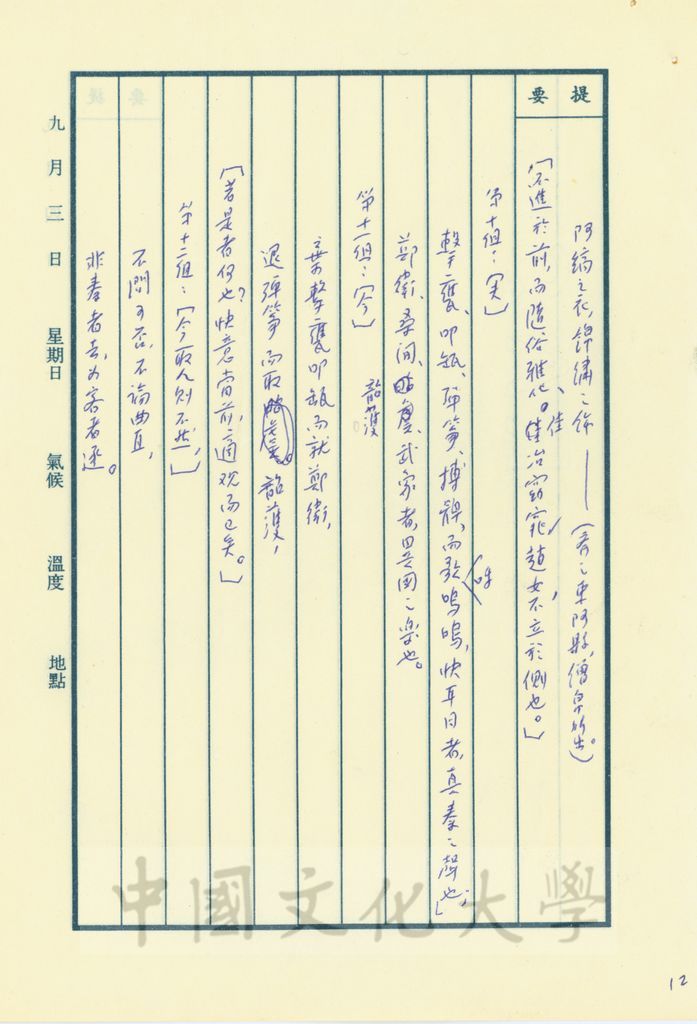 提要
阿縞之衣,錦繡之飾——(齊之東阿縣,繒帛所出。)
「不進於前,而隨俗雅化、佳冶窈窕,趙女不立於側也。」
第十組:「夫」
擊甕、叩缻、彈箏、搏髀,而歌呼嗚嗚,快耳目者,真秦之聲也;」
鄭衛、桑間、韶虞、武象者,異國之樂也。
第十一組:「今」
韶濩
棄擊甕叩缻而就鄭衛,
退彈箏而取韶濩,
「若是者何也?快意當前,適观而已矣。」
第十二組:「今取人則不然,」
不問可否,不論曲直,
非秦者去,为客者逐。
九月三日 星期日 氣候 溫度 地點
中國文化大學
12